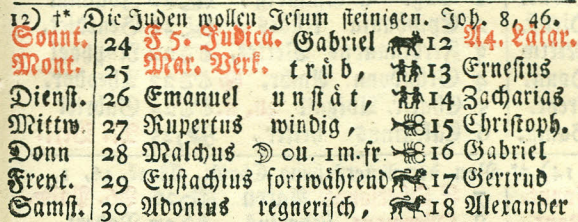 12) †* Die Juden wollen Jesum steinigen. Joh. 8, 46.
Sonnt. 24 F 5. Judica. Gabriel 12 A4. Lätar.
Mont. 25 Mar. Verk. trüb, 13 Ernestus
Dienst. 26 Emanuel unstät, 14 Zacharias
Mittw 27 Rupertus windig, 15 Christoph.
Donn 28 Malchus ☽ 0u. 1m. fr. 16 Gabriel
Freyt. 29 Eustachius fortwährend 17 Gertrud
Samst. 30 Adonius regnerisch, 18 Alexander